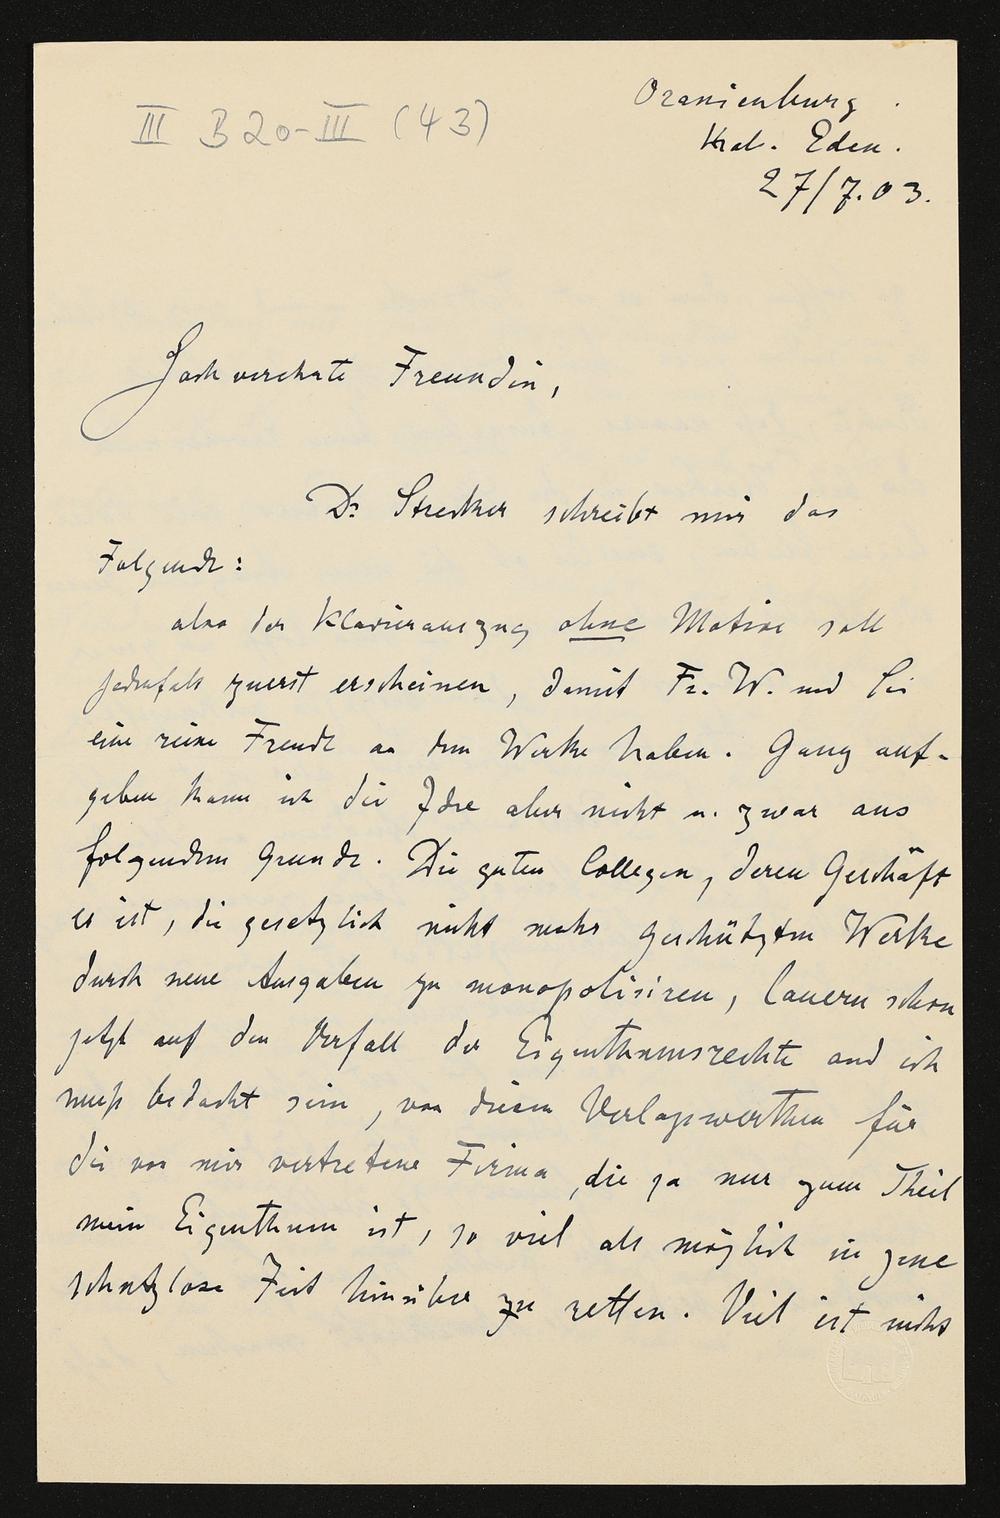 III B 20-III (43)
Oranienburg.
Kol. Eden.
27/7.03.
Hochverehrte Freundin,
Dr Strecker schreibt mir das
Folgende:
also der Klavierauszug ohne Motive soll
jedenfalls zuerst erscheinen, damit Fr. W. und Sie
eine reine Freude an dem Werke haben. Ganz auf-
geben kann ich die Idee aber nicht u. zwar aus
folgendem Grunde. Die guten Collegen, deren Geschäft
es ist, die gesetzlich nicht mehr geschützten Werke
durch neue Ausgaben zu monopolisiren, lauern schon
jetzt auf den Verfall der Eigenthumsrechte und ich
muß bedacht sein, von diesen Verlagswerthen für
die von mir vertretene Firma, die ja nur zum Theil
mein Eigenthum ist, so viel als möglich in jene
schutzlose Zeit hinüber zu retten. Viel ist nicht